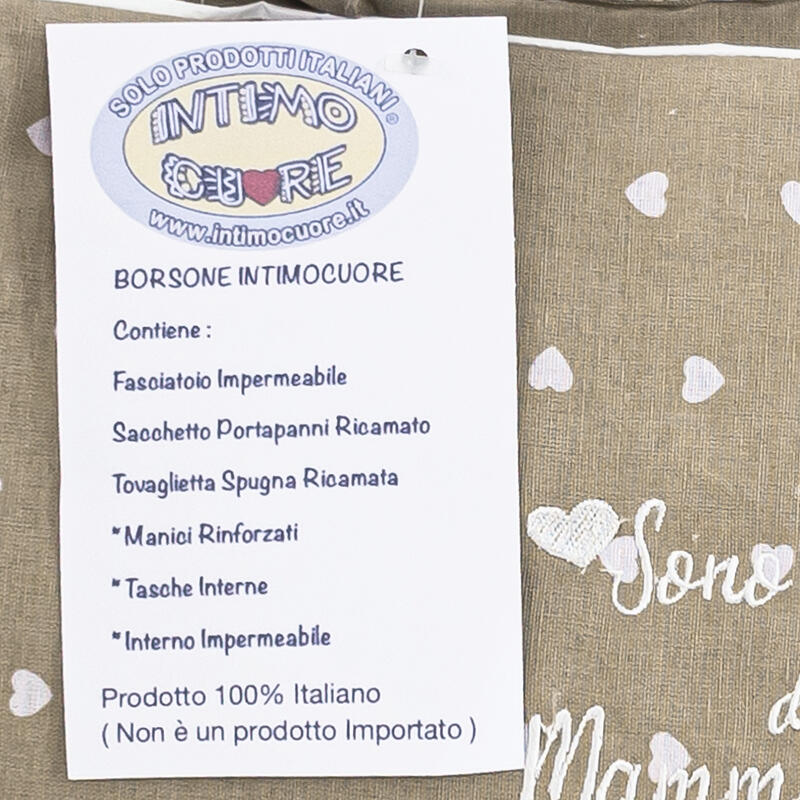 SOLO PRODOTTI ITALIANI ®
INTIMO
CUORE
www.intimocuore.it
BORSONE INTIMOCUORE
Contiene :
Fasciatoio Impermeabile
Sacchetto Portapanni Ricamato
Tovaglietta Spugna Ricamata
*Manici Rinforzati
*Tasche Interne
*Interno Impermeabile
Prodotto 100% Italiano
( Non è un prodotto Importato )
Sono
d
Mamm